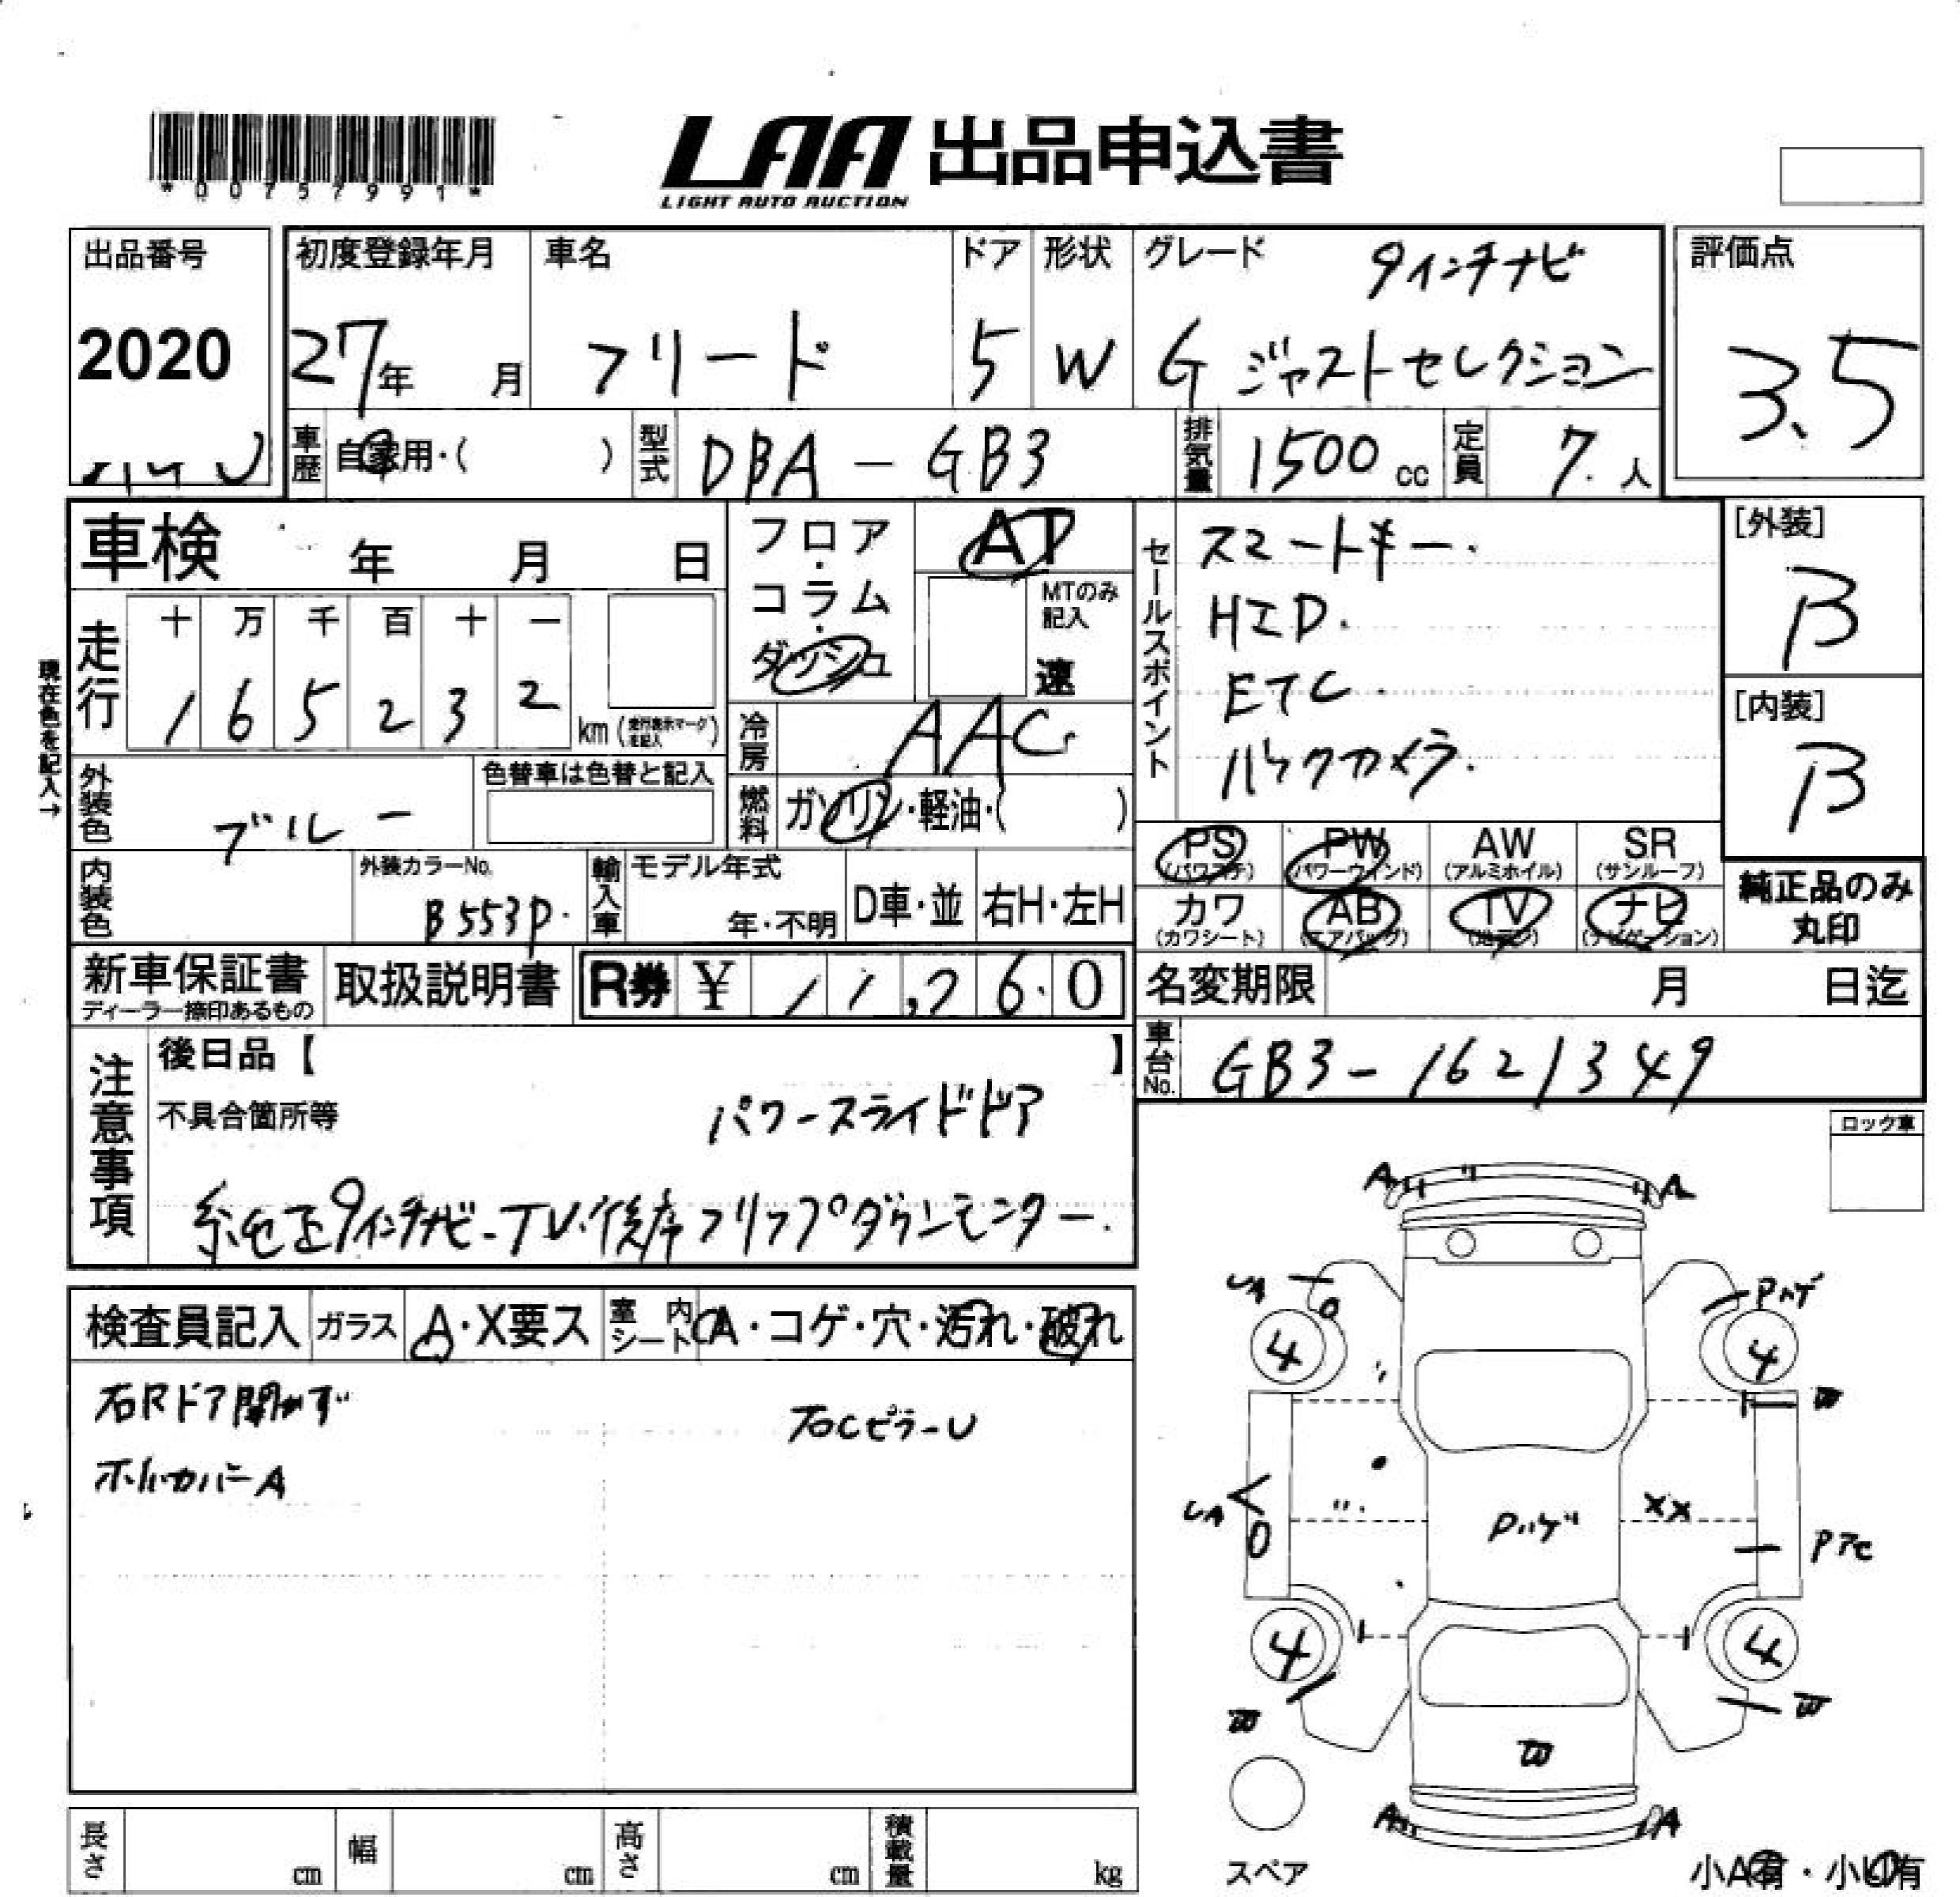 *00757991*
LAA 出品申込書
LIGHT AUTO AUCTION
出品番号
2020
初度登録年月
27年 月
車名
フリード
ドア
5
形状
W
グレード
9インチナビ
G ジャストセレクション
評価点
3.5
車歴 自家用・( )
型式 DBA - GB3
排気量 1500 cc
定員 7. 人
車検 年 月 日
フロア・コラム・ダッシュ
AT
MTのみ記入
速
セールスポイント
スマートキー.
HID.
ETC.
バックカメラ.
[外装]
B
[内装]
B
現在色を記入→
走行
十 万 千 百 十 一
1 6 5 2 3 2
km (走行表示マークを記入)
冷房 AAC
外装色 ブルー
色替車は色替と記入
燃料 ガソリン・軽油・( )
PS PW AW SR
(パワステ) (パワーウインド) (アルミホイル) (サンルーフ)
カワ AB TV ナビ
(カワシート) (エアバッグ) (地デジ) (ナビゲーション)
純正品のみ
丸印
内装色
外装カラーNo.
B553P.
輸入車
モデル年式
年・不明
D車・並 右H・左H
新車保証書
ディーラー捺印あるもの
取扱説明書
R券 ¥ 11,260
名変期限 月 日迄
車台No. GB3-1621349
注意事項
後日品【 】
不具合箇所等
パワースライドドア
純正9インチナビ-TV.後席フリップダウンモニター.
ロック車
検査員記入 ガラス A・X要ス 室内シート A・コゲ・穴・汚れ・破れ
右Rドア開かず
右CピラーU
ホイルカバーA
A A
UA
Pハゲ
4 4
W
UA
Pハゲ
XX
4 4
W W
W
A A
スペア
小A有・小U有
長さ cm 幅 cm 高さ cm 積載量 kg